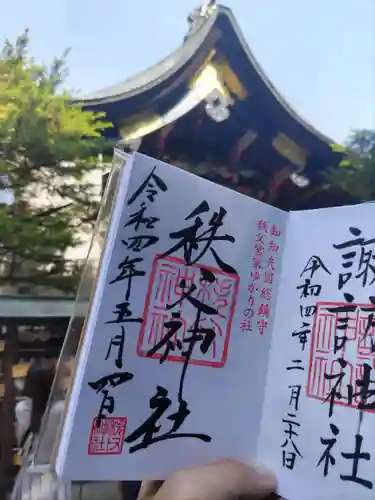 知知夫国総鎮守
秩父宮家ゆかりの社
秩父神社
令和四年五月四日
諏訪神社
令和四年二月二八日